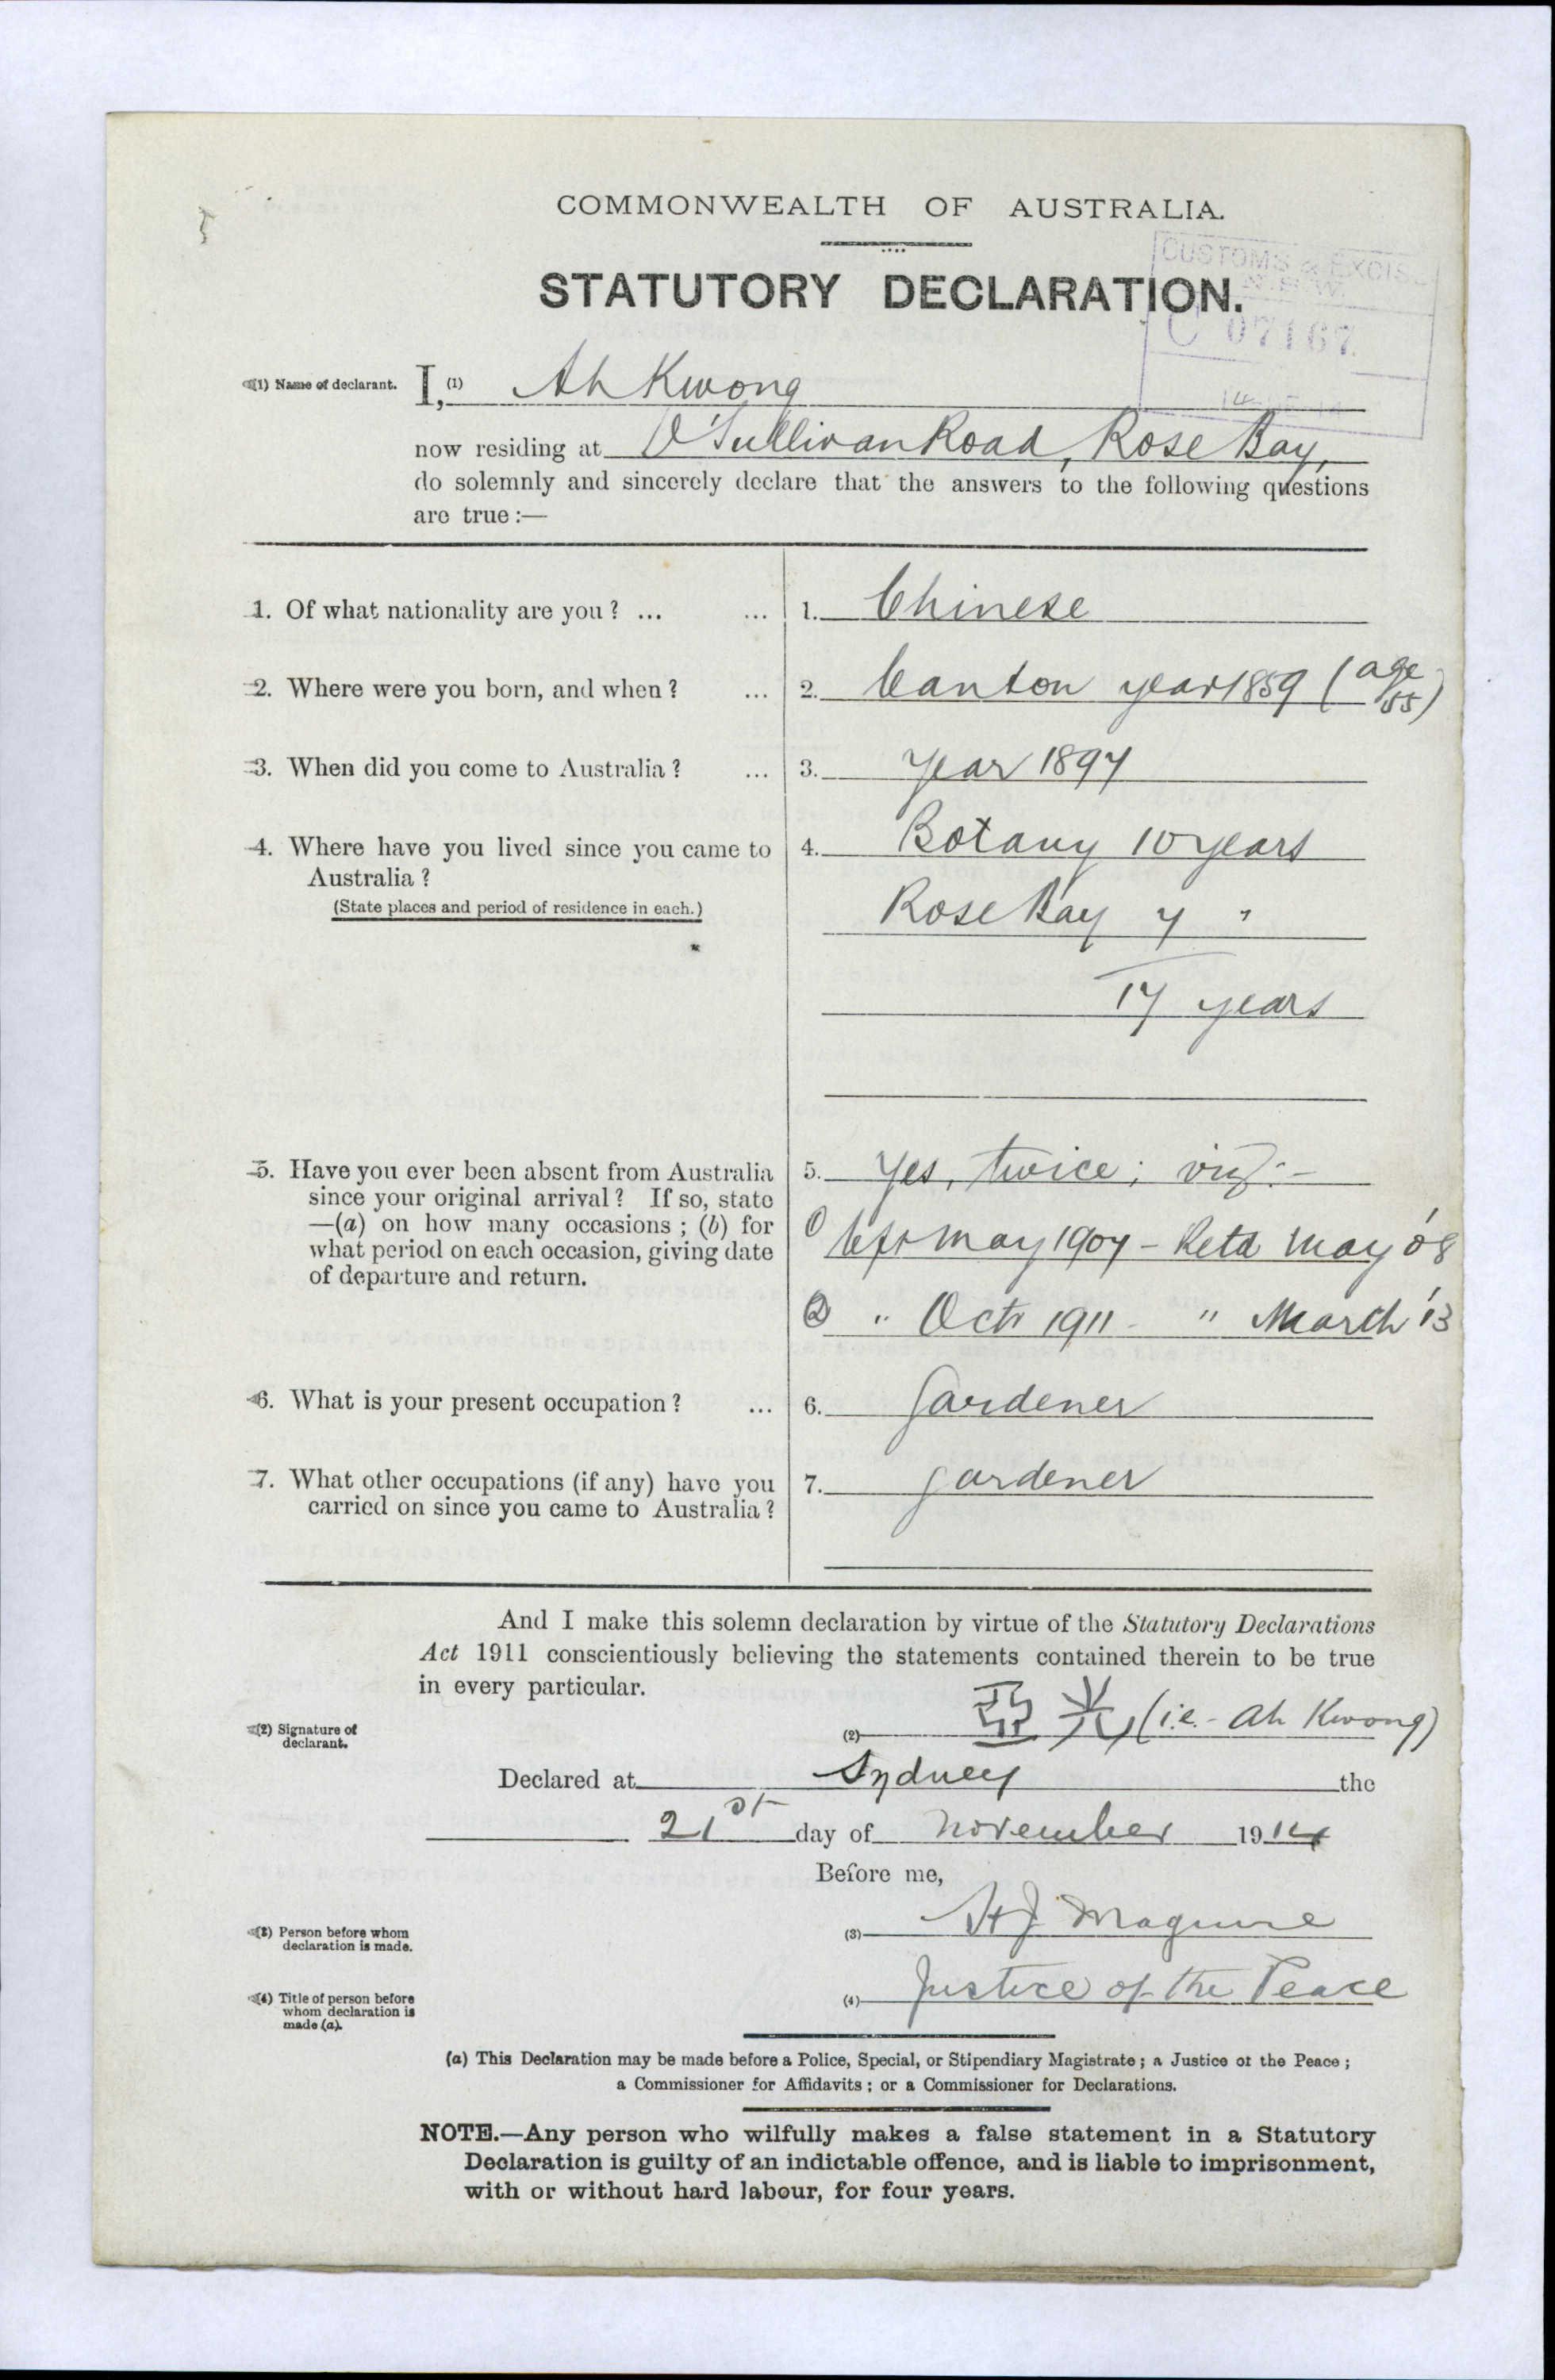 COMMONWEALTH OF AUSTRALIA.
STATUTORY DECLARATION.
CUSTOMS & EXCISE
N.S.W.
C 07167
(1) Name of declarant. I, (1) Ah Kwong
now residing at O'Sullivan Road, Rose Bay,
do solemnly and sincerely declare that the answers to the following questions
are true:—
1. Of what nationality are you? ... ... 1. Chinese
2. Where were you born, and when? ... 2. Canton year 1859 (age 55)
3. When did you come to Australia? ... 3. Year 1897
4. Where have you lived since you came to 4. Botany 10 years
Australia?
(State places and period of residence in each.) Rose Bay 7 "
17 years
5. Have you ever been absent from Australia 5. Yes, twice; viz:-
since your original arrival? If so, state
—(a) on how many occasions; (b) for (1) Left May 1907 - Retd May '08
what period on each occasion, giving date
of departure and return.
(2) " Octr 1911 - " March '13
6. What is your present occupation? ... 6. Gardener
7. What other occupations (if any) have you 7. Gardener
carried on since you came to Australia?
And I make this solemn declaration by virtue of the Statutory Declarations
Act 1911 conscientiously believing the statements contained therein to be true
in every particular.
(2) Signature of declarant. (2) 亞光 (i.e. - Ah Kwong)
Declared at Sydney the
21st day of November 1914
Before me,
(3) Person before whom declaration is made. (3) HJ Maguire
(4) Title of person before whom declaration is made (a). (4) Justice of the Peace
(a) This Declaration may be made before a Police, Special, or Stipendiary Magistrate; a Justice of the Peace;
a Commissioner for Affidavits; or a Commissioner for Declarations.
NOTE.—Any person who wilfully makes a false statement in a Statutory
Declaration is guilty of an indictable offence, and is liable to imprisonment,
with or without hard labour, for four years.